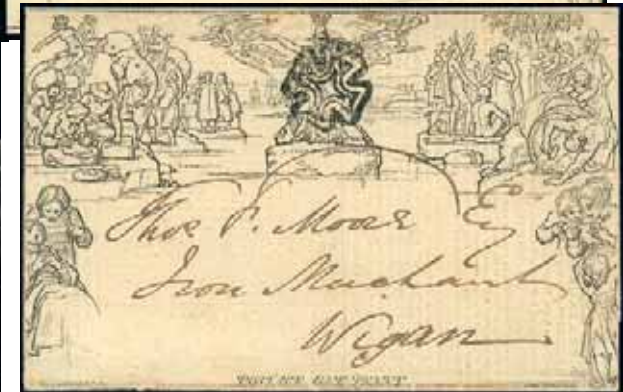 Thos P. Moore Esq
Iron Merchant
Wigan
POSTAGE ONE PENNY.